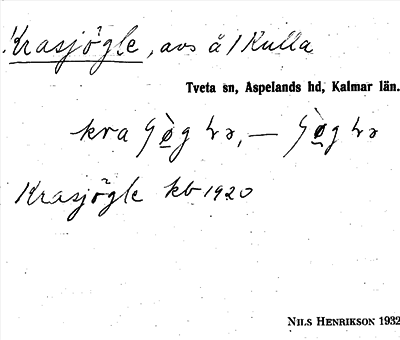 Krasjögle, avs å 1 Kulla
Tveta sn, Aspelands hd, Kalmar län.
kra
Krasjögle kb 1920
NILS HENRIKSON 1932